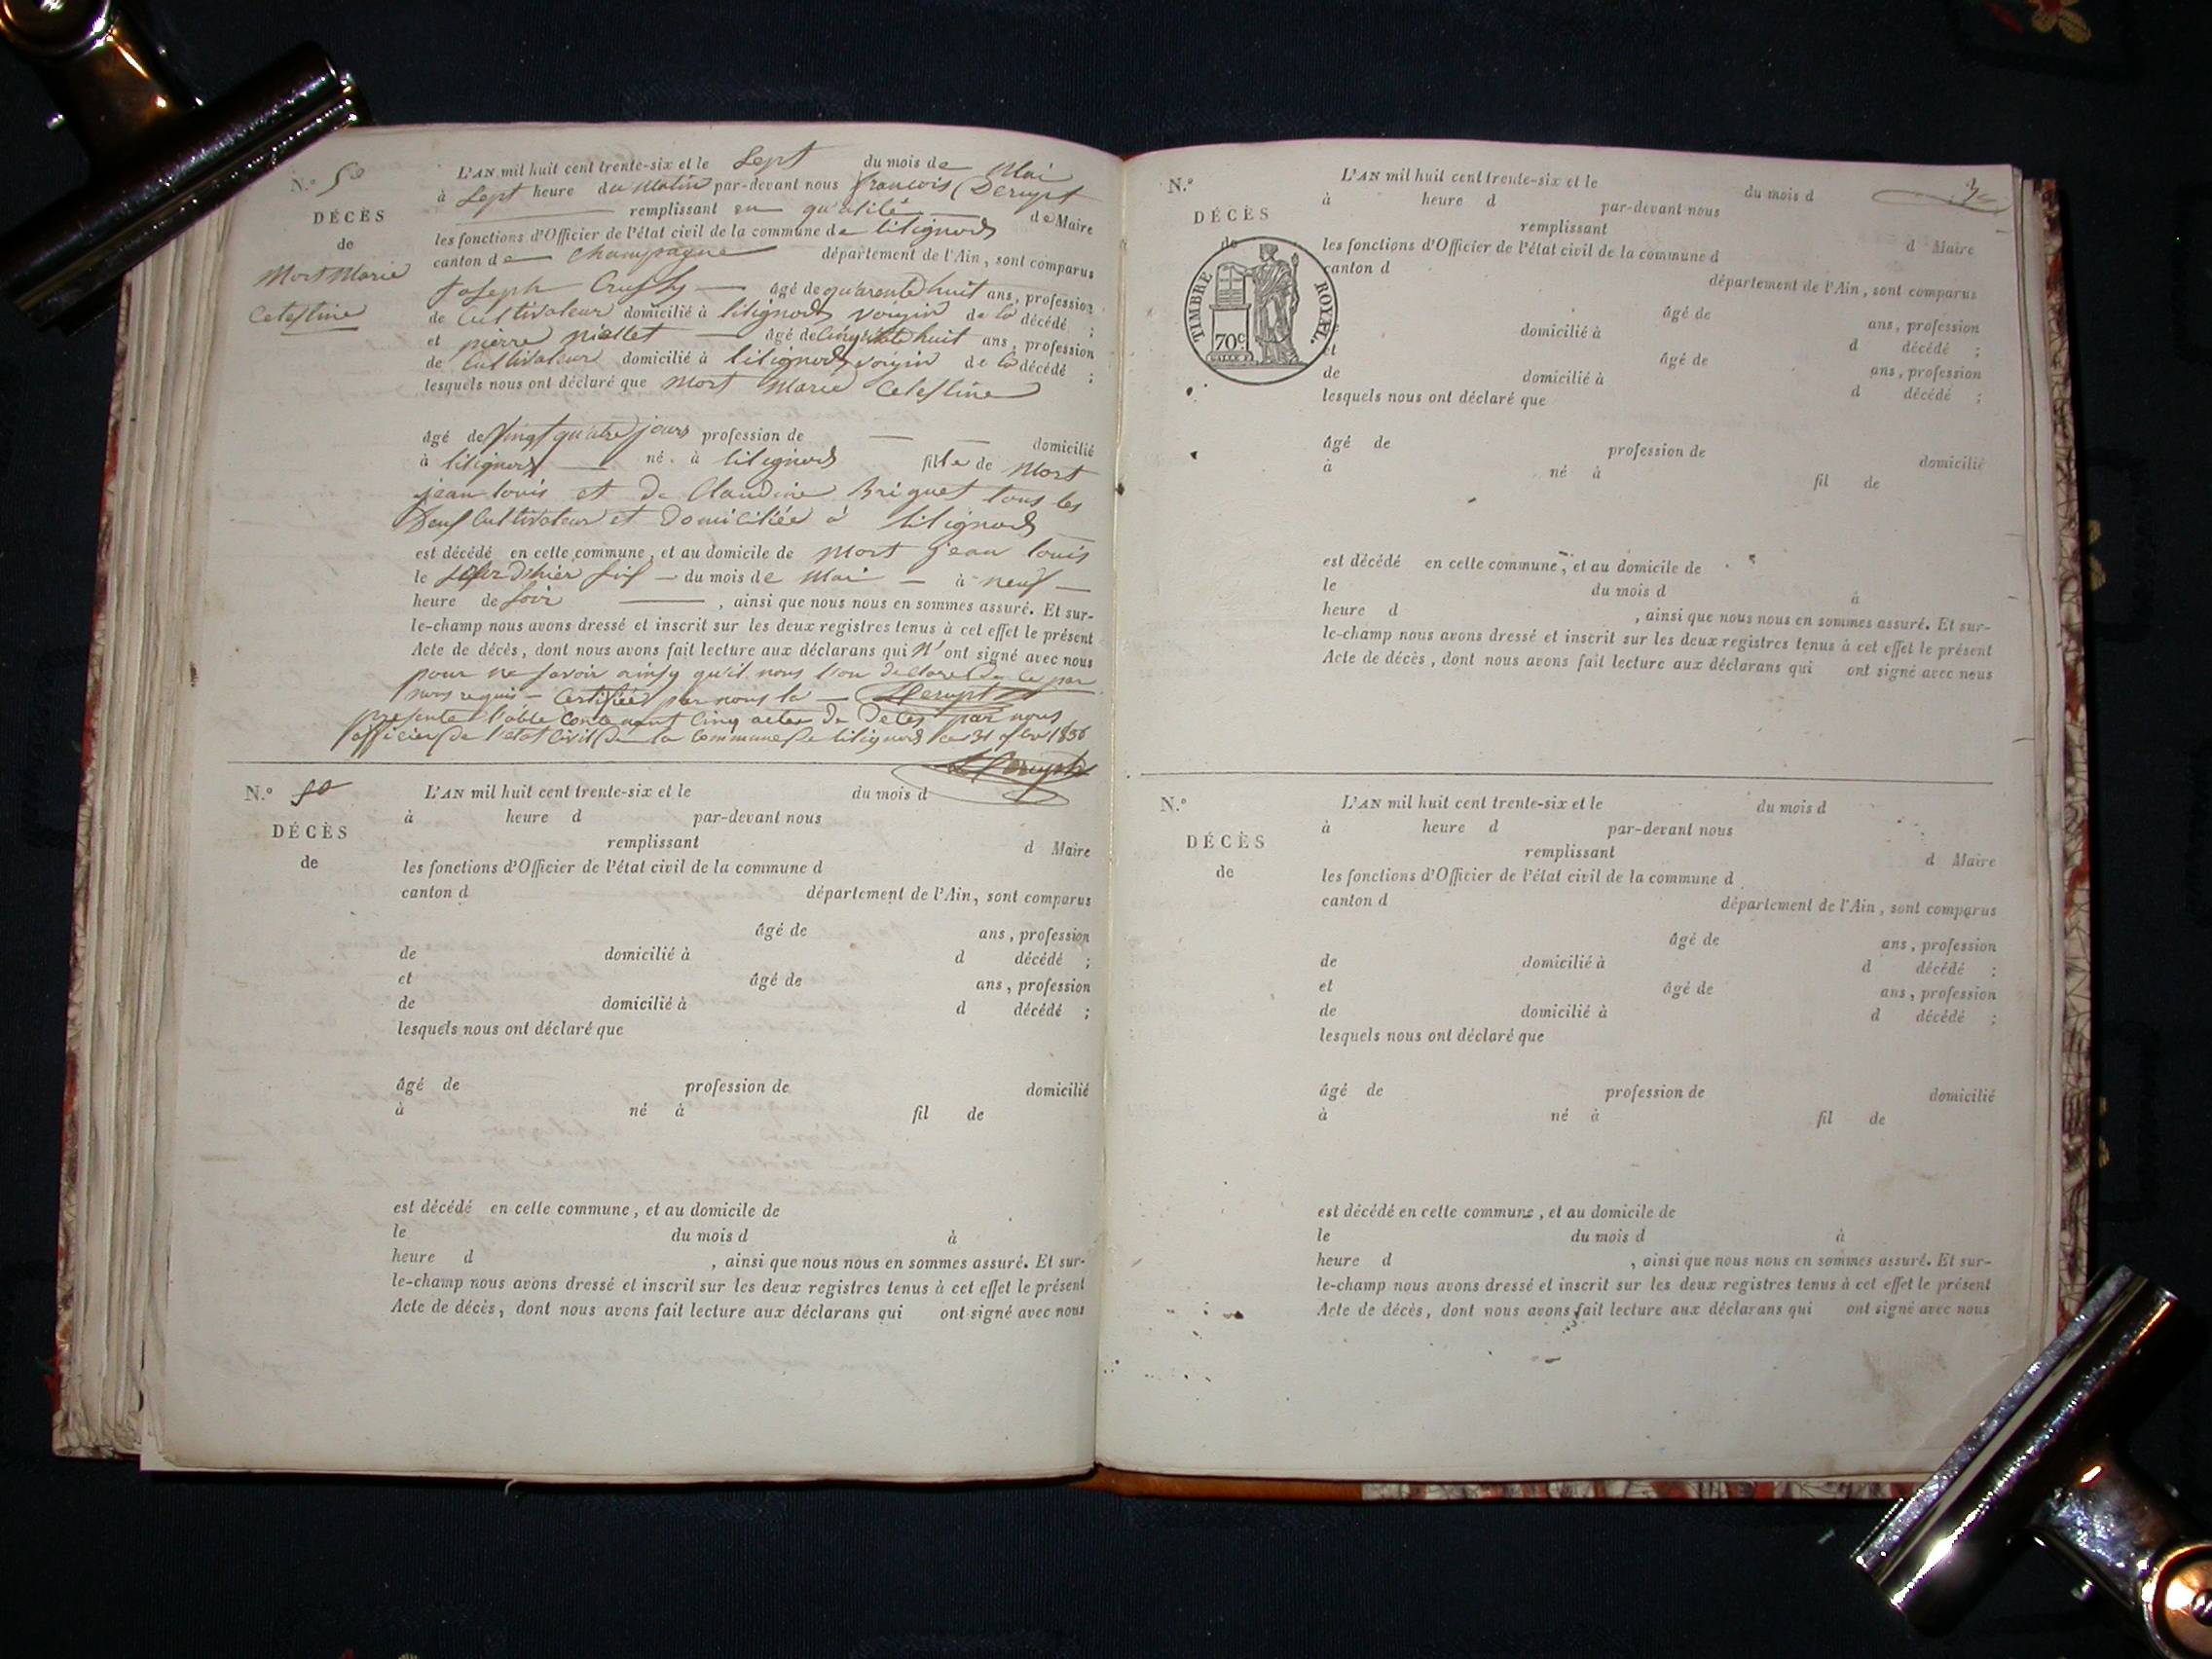 N.º 5e
DÉCÈS
de
Mort Marie
Celestine
L'AN mil huit cent trente-six et le Sept du mois de Mai
à Sept heure du Matin par-devant nous francois Derupt
remplissant en qu'alité de Maire
les fonctions d'Officier de l'état civil de la commune de lilignod
canton de Champagne département de l'Ain, sont comparus
Joseph âgé de qu'arente huit ans, profession
de Cultivateur domicilié à lilignod voizin de la décédé ;
et pierre miallet âgé de Cinquante huit ans, profession
de Cultivateur domicilié à lilignod voizin de la décédé ;
lesquels nous ont déclaré que Mort Marie Celestine
âgé de Vingt quatre jours profession de domicilié
à lilignod né à lilignod fille de Mort
jean louis et de Claudine Briquet tous les
Deux Cultivateur et domiciliée à lilignod
est décédé en cette commune, et au domicile de Mort jean louis
le jour d'hier six du mois de Mai à neuf
heure de Soir , ainsi que nous nous en sommes assuré. Et sur-
le-champ nous avons dressé et inscrit sur les deux registres tenus à cet effet le présent
Acte de décès, dont nous avons fait lecture aux déclarans qui n' ont signé avec nous
pour ne savoir ainsy qu'il nous l'on declaré de ce par
nous requis Certifiée par nous la Derupt
presente table Contenant Cinq actes de deces par nous
officier de l'etat Civil de la Commune de lilignod ce 31 1836
Derupt
N.º
DÉCÈS
de
L'AN mil huit cent trente-six et le du mois d
à heure d par-devant nous
remplissant d Maire
les fonctions d'Officier de l'état civil de la commune d
canton d département de l'Ain, sont comparus
âgé de ans, profession
de domicilié à d décédé ;
et âgé de ans, profession
de domicilié à d décédé ;
lesquels nous ont déclaré que
âgé de profession de domicilié
à né à fil de
est décédé en cette commune, et au domicile de
le du mois d à
heure d , ainsi que nous nous en sommes assuré. Et sur-
le-champ nous avons dressé et inscrit sur les deux registres tenus à cet effet le présent
Acte de décès, dont nous avons fait lecture aux déclarans qui ont signé avec nous
N.º
DÉCÈS
de
TIMBRE ROYAL.
70c
L'AN mil huit cent trente-six et le du mois d
à heure d par-devant nous
remplissant d Maire
les fonctions d'Officier de l'état civil de la commune d
canton d département de l'Ain, sont comparus
âgé de ans, profession
domicilié à d décédé ;
et âgé de ans, profession
de domicilié à d décédé ;
lesquels nous ont déclaré que
âgé de profession de domicilié
à né à fil de
est décédé en cette commune, et au domicile de
le du mois d à
heure d , ainsi que nous nous en sommes assuré. Et sur-
le-champ nous avons dressé et inscrit sur les deux registres tenus à cet effet le présent
Acte de décès, dont nous avons fait lecture aux déclarans qui ont signé avec nous
N.º
DÉCÈS
de
L'AN mil huit cent trente-six et le du mois d
à heure d par-devant nous
remplissant d Maire
les fonctions d'Officier de l'état civil de la commune d
canton d département de l'Ain, sont comparus
âgé de ans, profession
de domicilié à d décédé ;
et âgé de ans, profession
de domicilié à d décédé ;
lesquels nous ont déclaré que
âgé de profession de domicilié
à né à fil de
est décédé en cette commune, et au domicile de
le du mois d à
heure d , ainsi que nous nous en sommes assuré. Et sur-
le-champ nous avons dressé et inscrit sur les deux registres tenus à cet effet le présent
Acte de décès, dont nous avons fait lecture aux déclarans qui ont signé avec nous